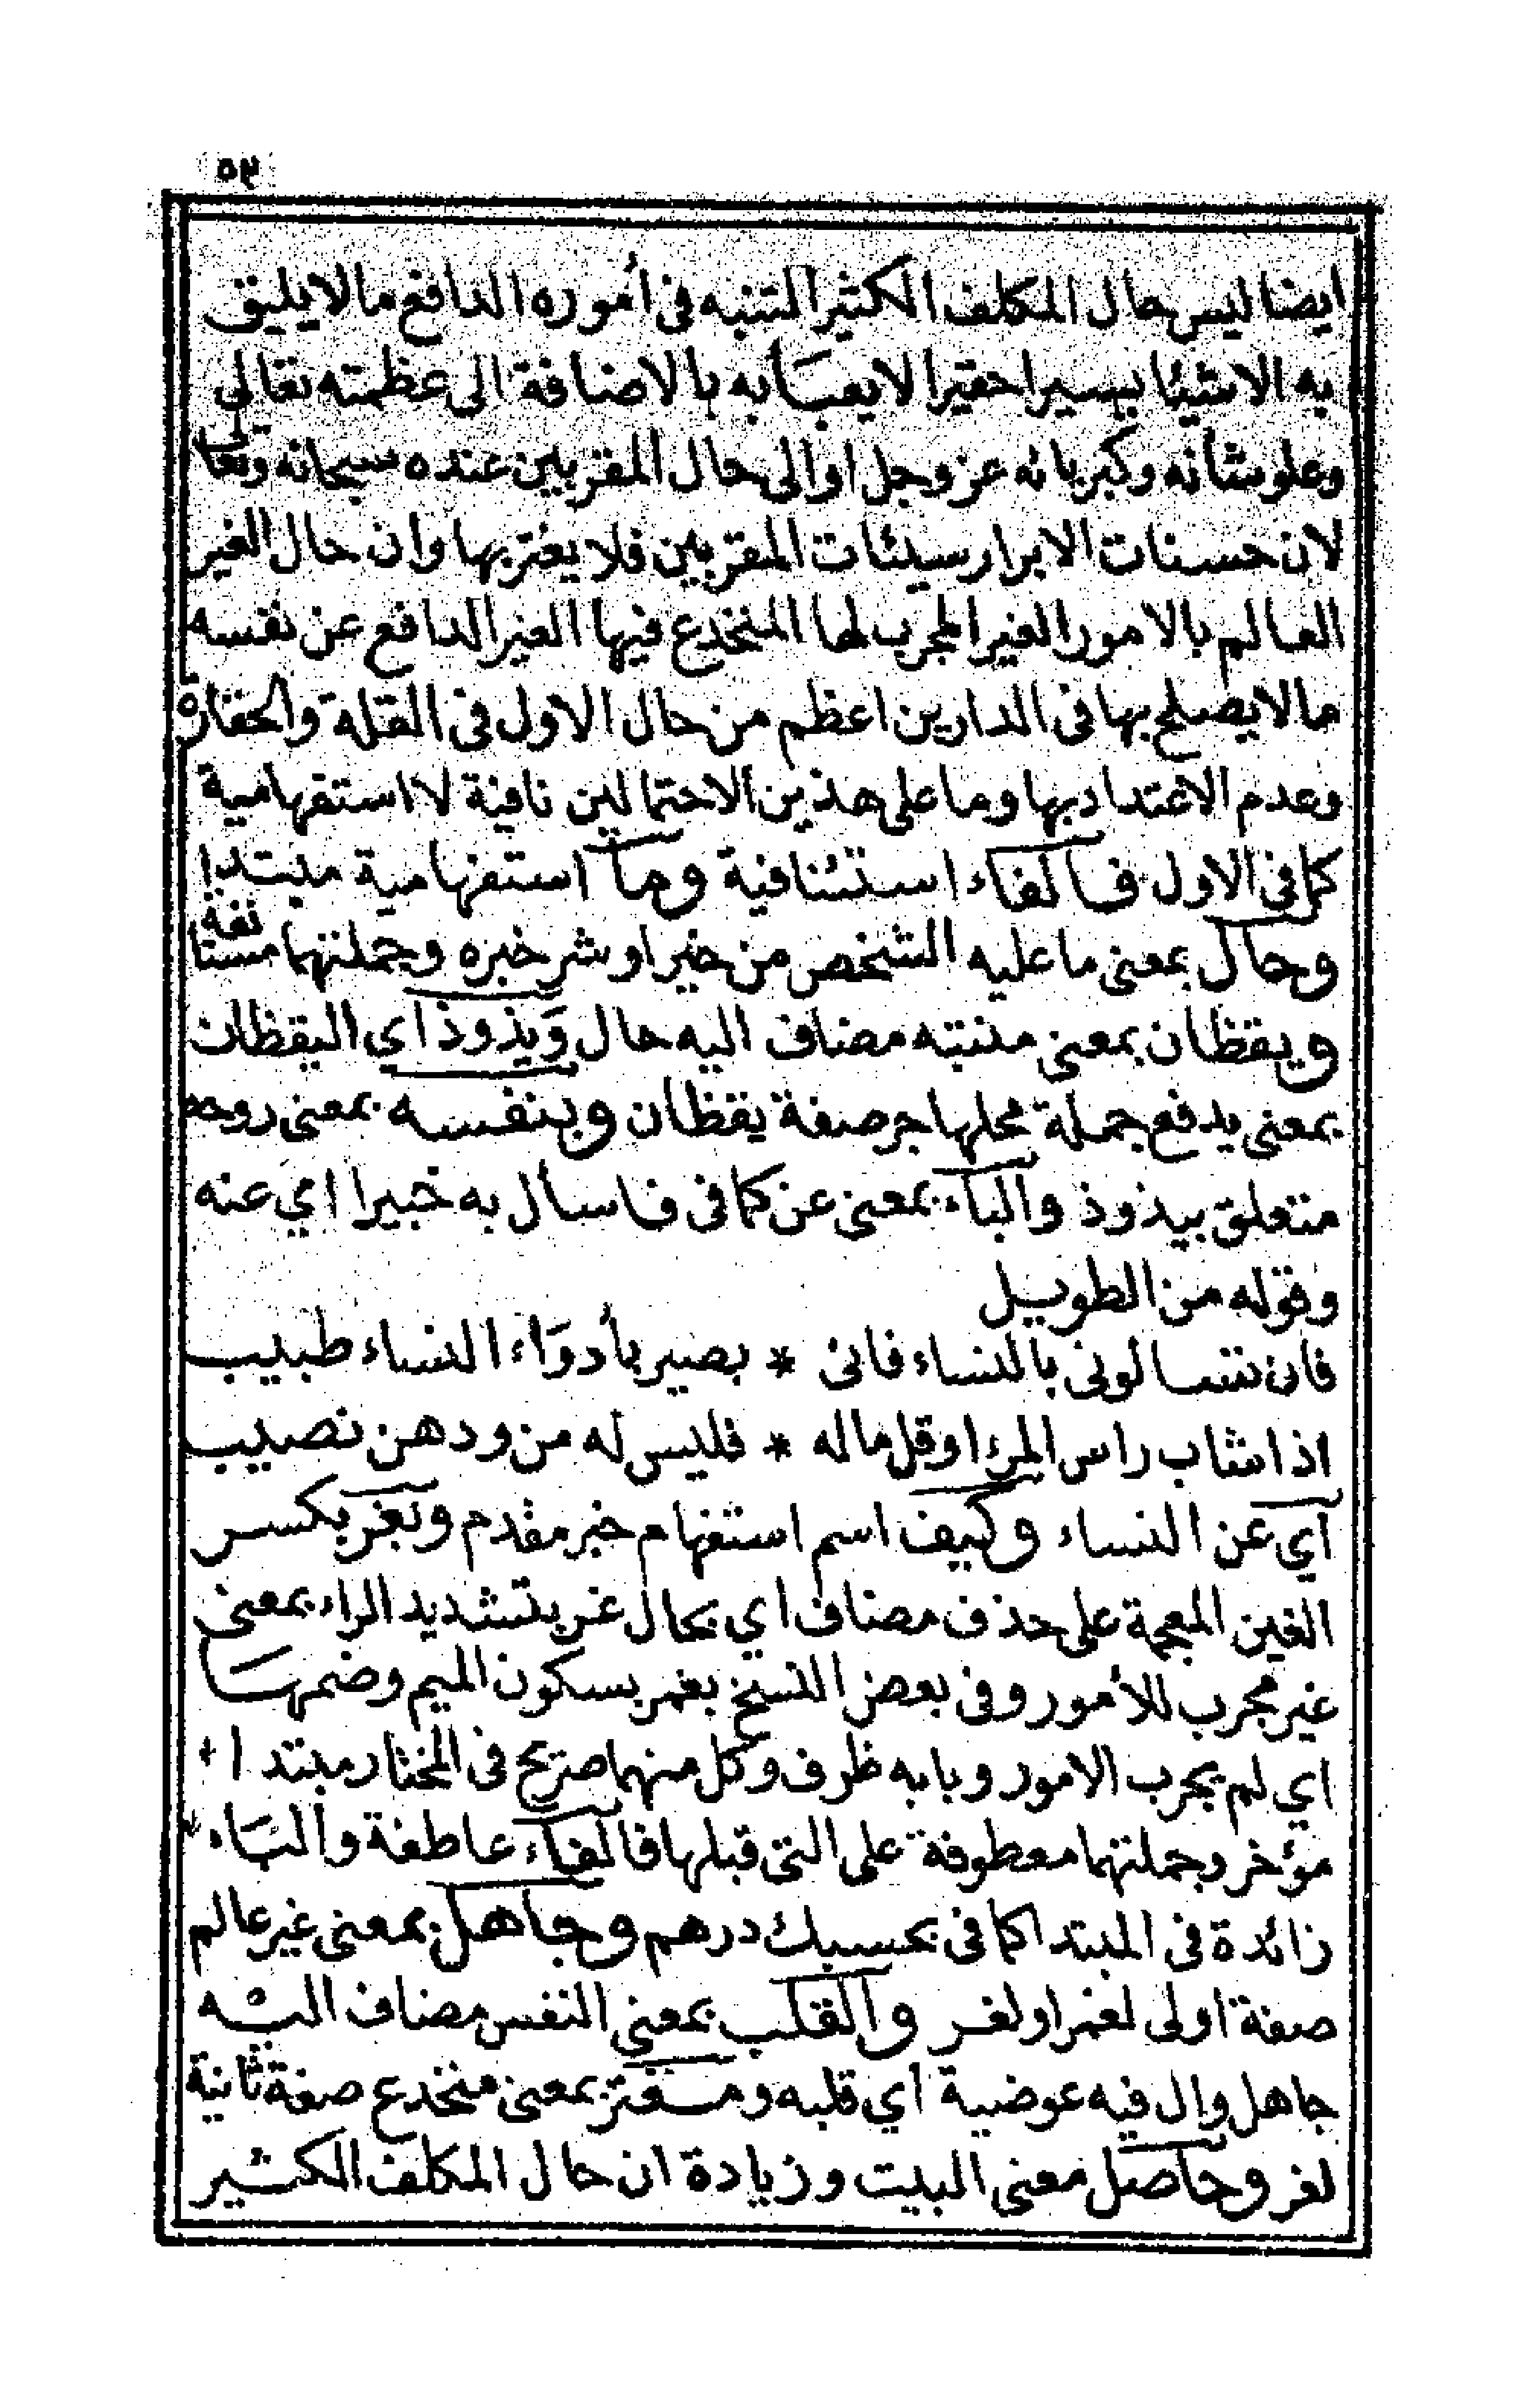 ٥٢
ايضا ليس حال المكلف الكثير التنبه فى أموره الدافع ما لا يليق
به الا شيئا يسيرا حقيرا لا يعبأ به بالاضافة الى عظمته تعالى
وعلو شأنه وكبريائه عز وجل او الى حال المقربين عنده سبحانه وتعالى
لان حسنات الابرار سيئات المقربين فلا يغتر بها وان حال الغير
العالم بالامور الغير المجرب لها المنخدع فيها الغير الدافع عن نفسه
ما لا يصلح بها فى الدارين اعظم من حال الاول فى القلة والحقارة
وعدم الاعتداد بها وما على هذين الاحتمالين نافية لا استفهامية
كما فى الاول فالفاء استئنافية وما استفهامية مبتدا
وحال بمعنى ما عليه الشخص من خير او شر خبره وجملتهما مستانفة
ويقظان بمعنى متنبه مضاف اليه حال ويذوذ اي اليقظان
بمعنى يدفع جملة محلها جر صفة يقظان وبنفسه بمعنى روحه
متعلق بيذوذ والباء بمعنى عن كما فى فاسأل به خبيرا اي عنه
وقوله من الطويل
فان تسالونى بالنساء فانى * بصير بأدوَاء النساء طبيب
اذا شاب راس المرء او قل ماله * فليس له من ودهن نصيب
آي عن النساء وكيف اسم استفهام خبر مقدم وبغر بكسر
الغين المعجمة على حذف مضاف اي بحال غر بتشديد الراء بمعنى
غير مجرب للأمور وفى بعض النسخ بغمر بسكون الميم وضمها
اي لم يجرب الامور وبابه ظرف وكل منهما صريح فى المختار مبتدا
مؤخر وجملتهما معطوفة على التى قبلها فالفاء عاطفة والباء
زائدة فى المبتدا كما فى بحسبك درهم وجاهل بمعنى غير عالم
صفة اولى لغمر او لغر والقلب بمعنى النفس مضاف اليه
جاهل وال فيه عوضية اي قلبه ومغتر بمعنى منخدع صفة ثانية
لغر وحاصل معنى البيت وزيادة ان حال المكلف الكثير